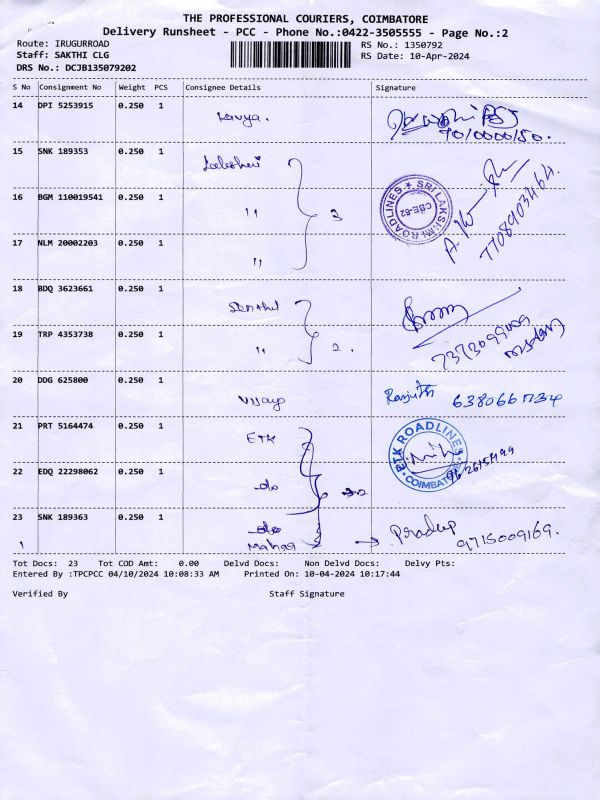 THE PROFESSIONAL COURIERS, COIMBATORE
Delivery Runsheet - PCC - Phone No.:0422-3505555 - Page No.:2
Route: IRUGURROAD RS No.: 1350792
Staff: SAKTHI CLG RS Date: 10-Apr-2024
DRS No.: DCJB135079202
S No Consignment No Weight PCS Consignee Details Signature
14 DPI 5253915 0.250 1 Lavya.
15 SNK 189353 0.250 1
16 BGM 110019541 0.250 1 " 3
SRI LAKSHMI ROADLINES CBE-62
7708903464.
17 NLM 20002203 0.250 1 "
18 BDQ 3623661 0.250 1 Senthil
19 TRP 4353738 0.250 1 " 2.
20 DDG 625800 0.250 1 Vijay Ranjith
21 PRT 5164474 0.250 1 ETK
ETK ROADLINES COIMBATORE
22 EDQ 22298062 0.250 1 do
23 SNK 189363 0.250 1 do
1 → Pradeep 9715009169.
Tot Docs: 23 Tot COD Amt: 0.00 Delvd Docs: Non Delvd Docs: Delvy Pts:
Entered By :TPCPCC 04/10/2024 10:08:33 AM Printed On: 10-04-2024 10:17:44
Verified By Staff Signature